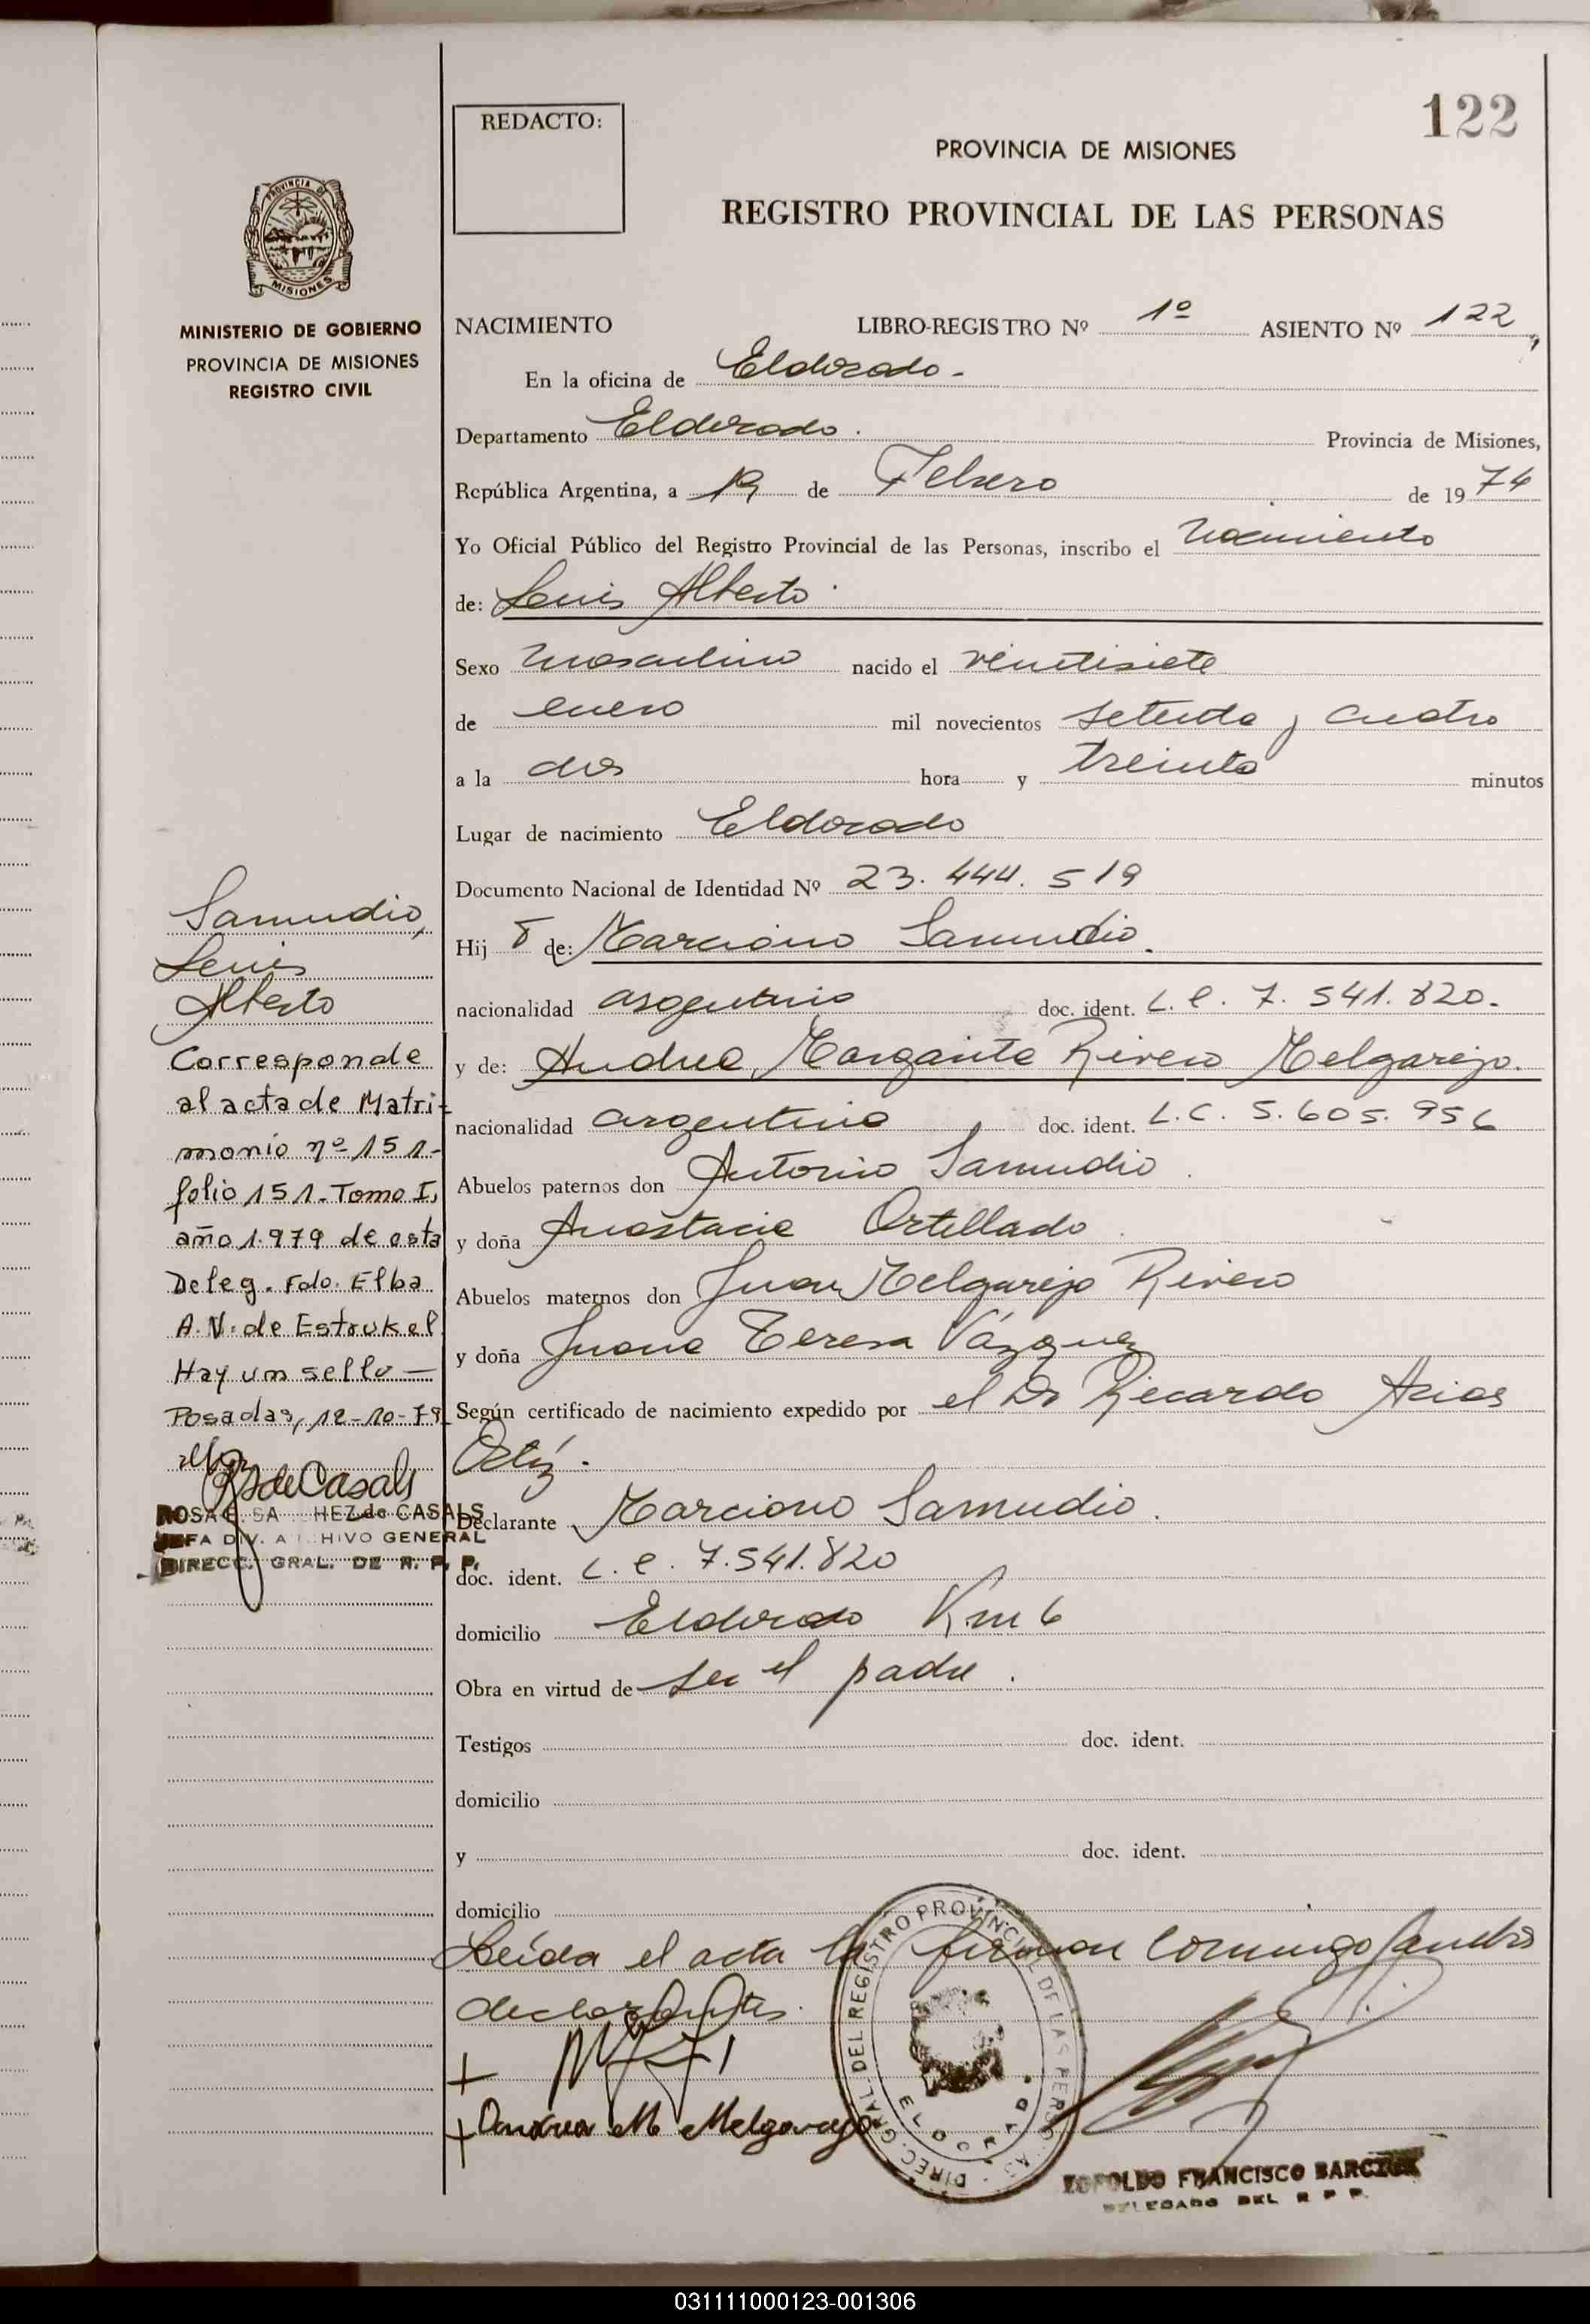 122
REDACTO:
PROVINCIA DE MISIONES
REGISTRO PROVINCIAL DE LAS PERSONAS
PROVINCIA DE
MISIONES
MINISTERIO DE GOBIERNO
PROVINCIA DE MISIONES
REGISTRO CIVIL
NACIMIENTO LIBRO-REGISTRO Nº 1º ASIENTO Nº 122,
En la oficina de Eldorado-
Departamento Eldorado. Provincia de Misiones,
República Argentina, a 19 de Febrero de 1974
Yo Oficial Público del Registro Provincial de las Personas, inscribo el nacimiento
de: Luis Alberto
Sexo masculino nacido el veintisiete
de enero mil novecientos setenta y cuatro
a la dos hora y treinta minutos
Lugar de nacimiento Eldorado
Documento Nacional de Identidad Nº 23.444.519
Hijo de: Marciano Samudio.
nacionalidad argentino doc. ident. L.e. 7.541.820.
y de: Andrea Margarita Rivero Melgarejo.
nacionalidad argentina doc. ident. L.C. 5.605.956
Abuelos paternos don Antonio Samudio.
y doña Anastacia Ortellado.
Abuelos maternos don Juan Melgarejo Rivero
y doña Juana Teresa Vázquez
Según certificado de nacimiento expedido por el Dr Ricardo Arias
Ortíz.
Declarante Marciano Samudio.
doc. ident. L.e. 7.541.820
domicilio Eldorado Km 6
Obra en virtud de ser el padre.
Testigos doc. ident.
domicilio
y doc. ident.
domicilio
Leída el acta la firman conmigo
declarantes.
+
+ Andrea M Melgarejo
Samudio,
Luis
Alberto
Corresponde
al acta de Matri-
monio nº 151-
folio 151-Tomo I,
año 1.979 de esta
Deleg. Fdo. Elba
A.N. de Estrukel
Hay un sello—
Posadas, 12-10-79
RSdeCasals
ROSA E. SA HEZ de CASALS
JEFA DIV. A HIVO GENERAL
DIRECC. GRAL. DE R. P. P.
DIREC. GRAL. DEL REGISTRO PROVINCIAL DE LAS PERSONAS
ELDORADO
FRANCISCO
DELEGADO DEL R P P.
031111000123-001306